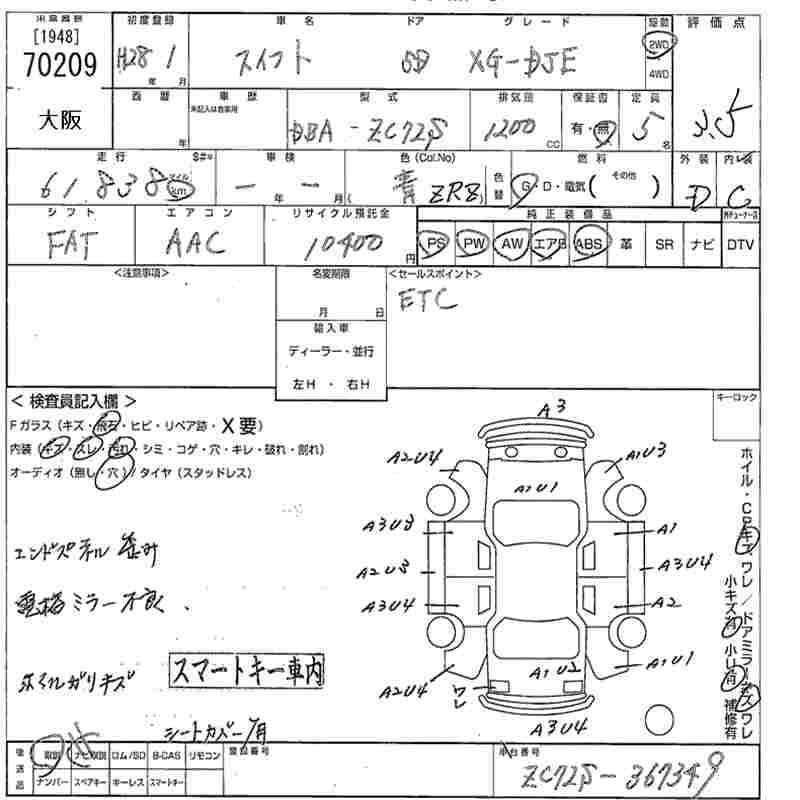 [1948] 初度登録 車名 ドア グレード 駆動 評価点
70209 H28 1 スイフト 5D XG-DJE 2WD 4WD
年 月
大阪 西暦 車歴 型式 排気量 保証書 定員 3.5
未記入は自家用
年 DBA-ZC72S 1200 CC 有・無 5 名
走行 S#* 車検 色(Col.No) 燃料 外装 内装
61,838 マイル km ー年ー月 ( 青 ZRZ ) 色替 G・D・電気( その他 ) D C
シフト エアコン リサイクル預託金 純正装備品
FAT AAC 10400 円 PS PW AW エアB ABS 革 SR ナビ DTV
<注意事項> 名変期限 <セールスポイント>
月 日 ETC
輸入車
ディーラー・並行
左H ・ 右H
<検査員記入欄> キーロック
Fガラス(キズ・飛石・ヒビ・リペア跡・X要)
内装(キズ・スレ・汚れ・シミ・コゲ・穴・キレ・破れ・割れ)
オーディオ(無し・穴)/タイヤ(スタッドレス)
A3
A2U4 A1U3
A1U1
A3U3 A1
A2U3 A3U4
A3U4 A2
A1U2 A1U1
A2U4 ワレ
A3U4
エンドパネル歪み
電格ミラー不良、
ホイルガリキズ
スマートキー車内
シートカバー有
ホイル・CPキズ、ワレ/ドアミラーキズ、ワレ
小キズ有 小凹有 補修有
後送品 取説 ナビ取説 ロム/SD B-CAS リモコン 登録番号 車台番号
ナンバー スペアキー キーレス スマートキー ZC72S-367349